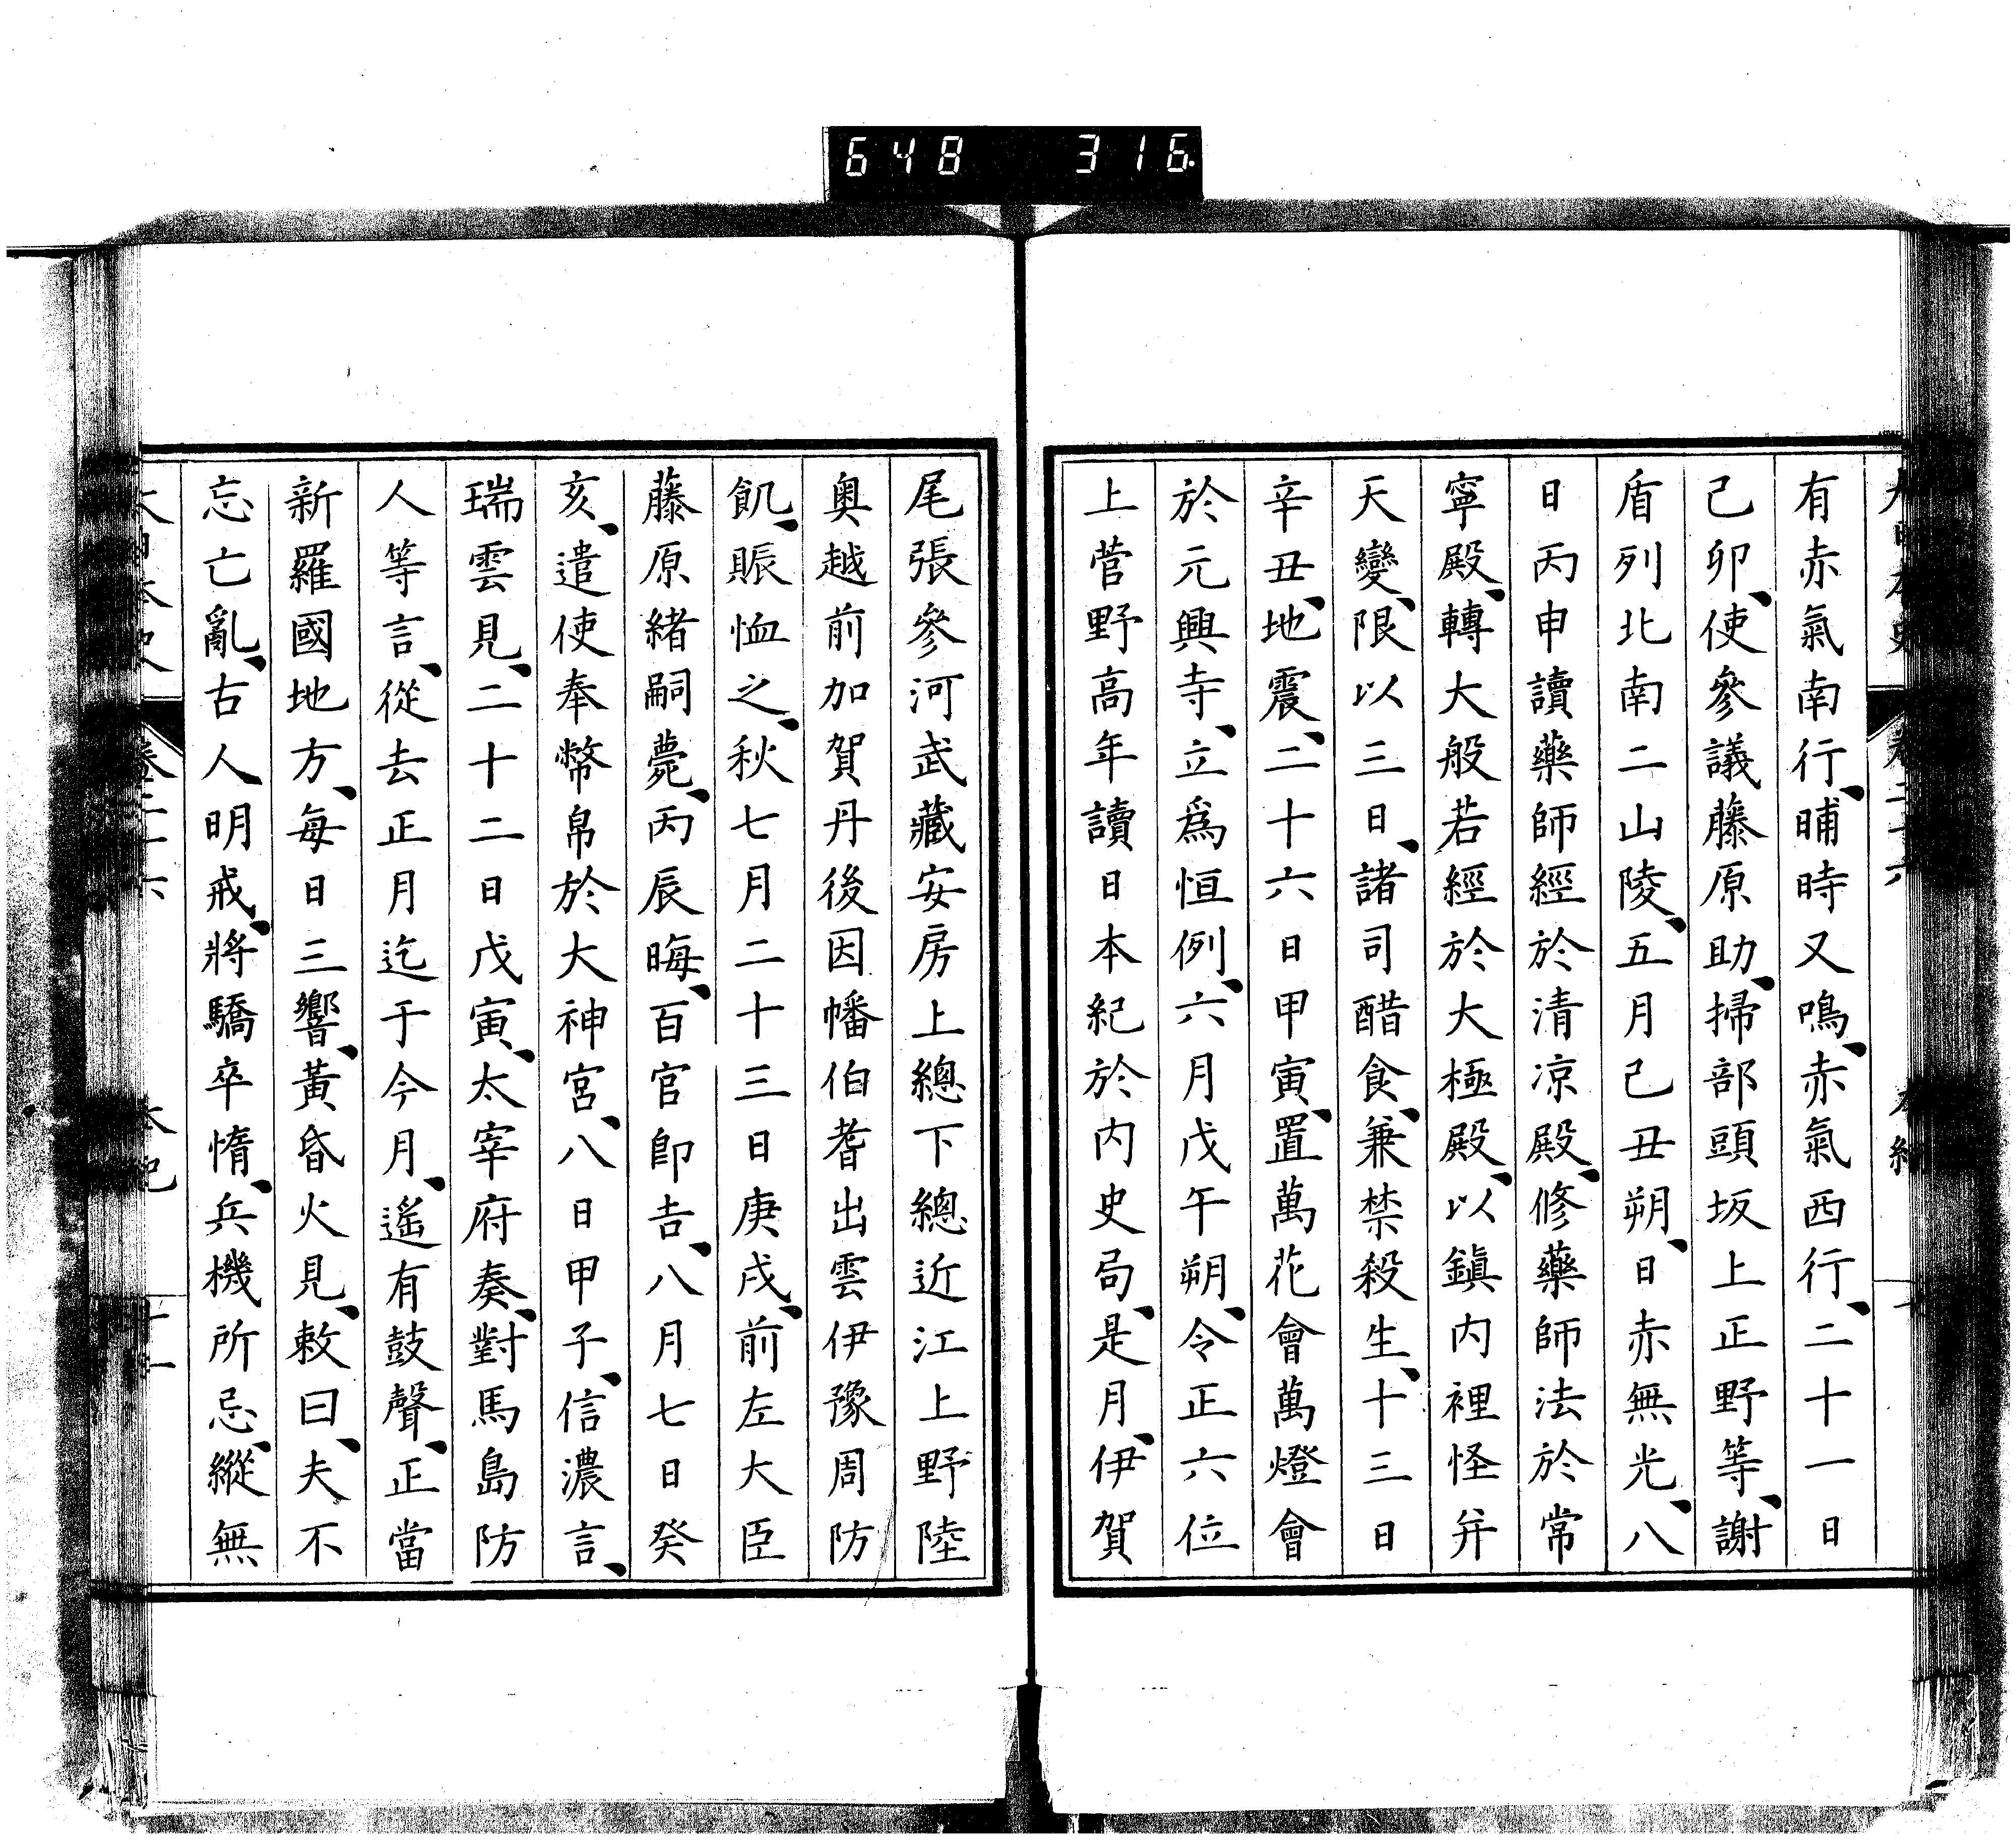 648 316
有赤氣南行、晡時又鳴、赤氣西行、二十一日
己卯、使參議藤原助、掃部頭坂上正野等、謝
盾列北南二山陵、五月己丑朔、日赤無光、八
日丙申讀藥師經於清凉殿、修藥師法於常
寧殿、轉大般若經於大極殿、以鎭内裡怪并
天變、限以三日、諸司醋食、兼禁殺生、十三日
辛丑、地震、二十六日甲寅、置萬花會萬燈會
於元興寺、立爲恒例、六月戊午朔、令正六位
上菅野高年讀日本紀於内史局、是月、伊賀
尾張參河武藏安房上總下總近江上野陸
奥越前加賀丹後因幡伯耆出雲伊豫周防
飢、賑恤之、秋七月二十三日庚戌、前左大臣
藤原緒嗣薨、丙辰晦、百官卽吉、八月七日癸
亥、遣使奉幣帛於大神宮、八日甲子、信濃言、
瑞雲見、二十二日戊寅、太宰府奏、對馬島防
人等言、從去正月迄于今月、遙有鼓聲、正當
新羅國地方、每日三響、黃昏火見、敕曰、夫不
忘亡亂、古人明戒、將驕卒惰、兵機所忌、縱無
本紀